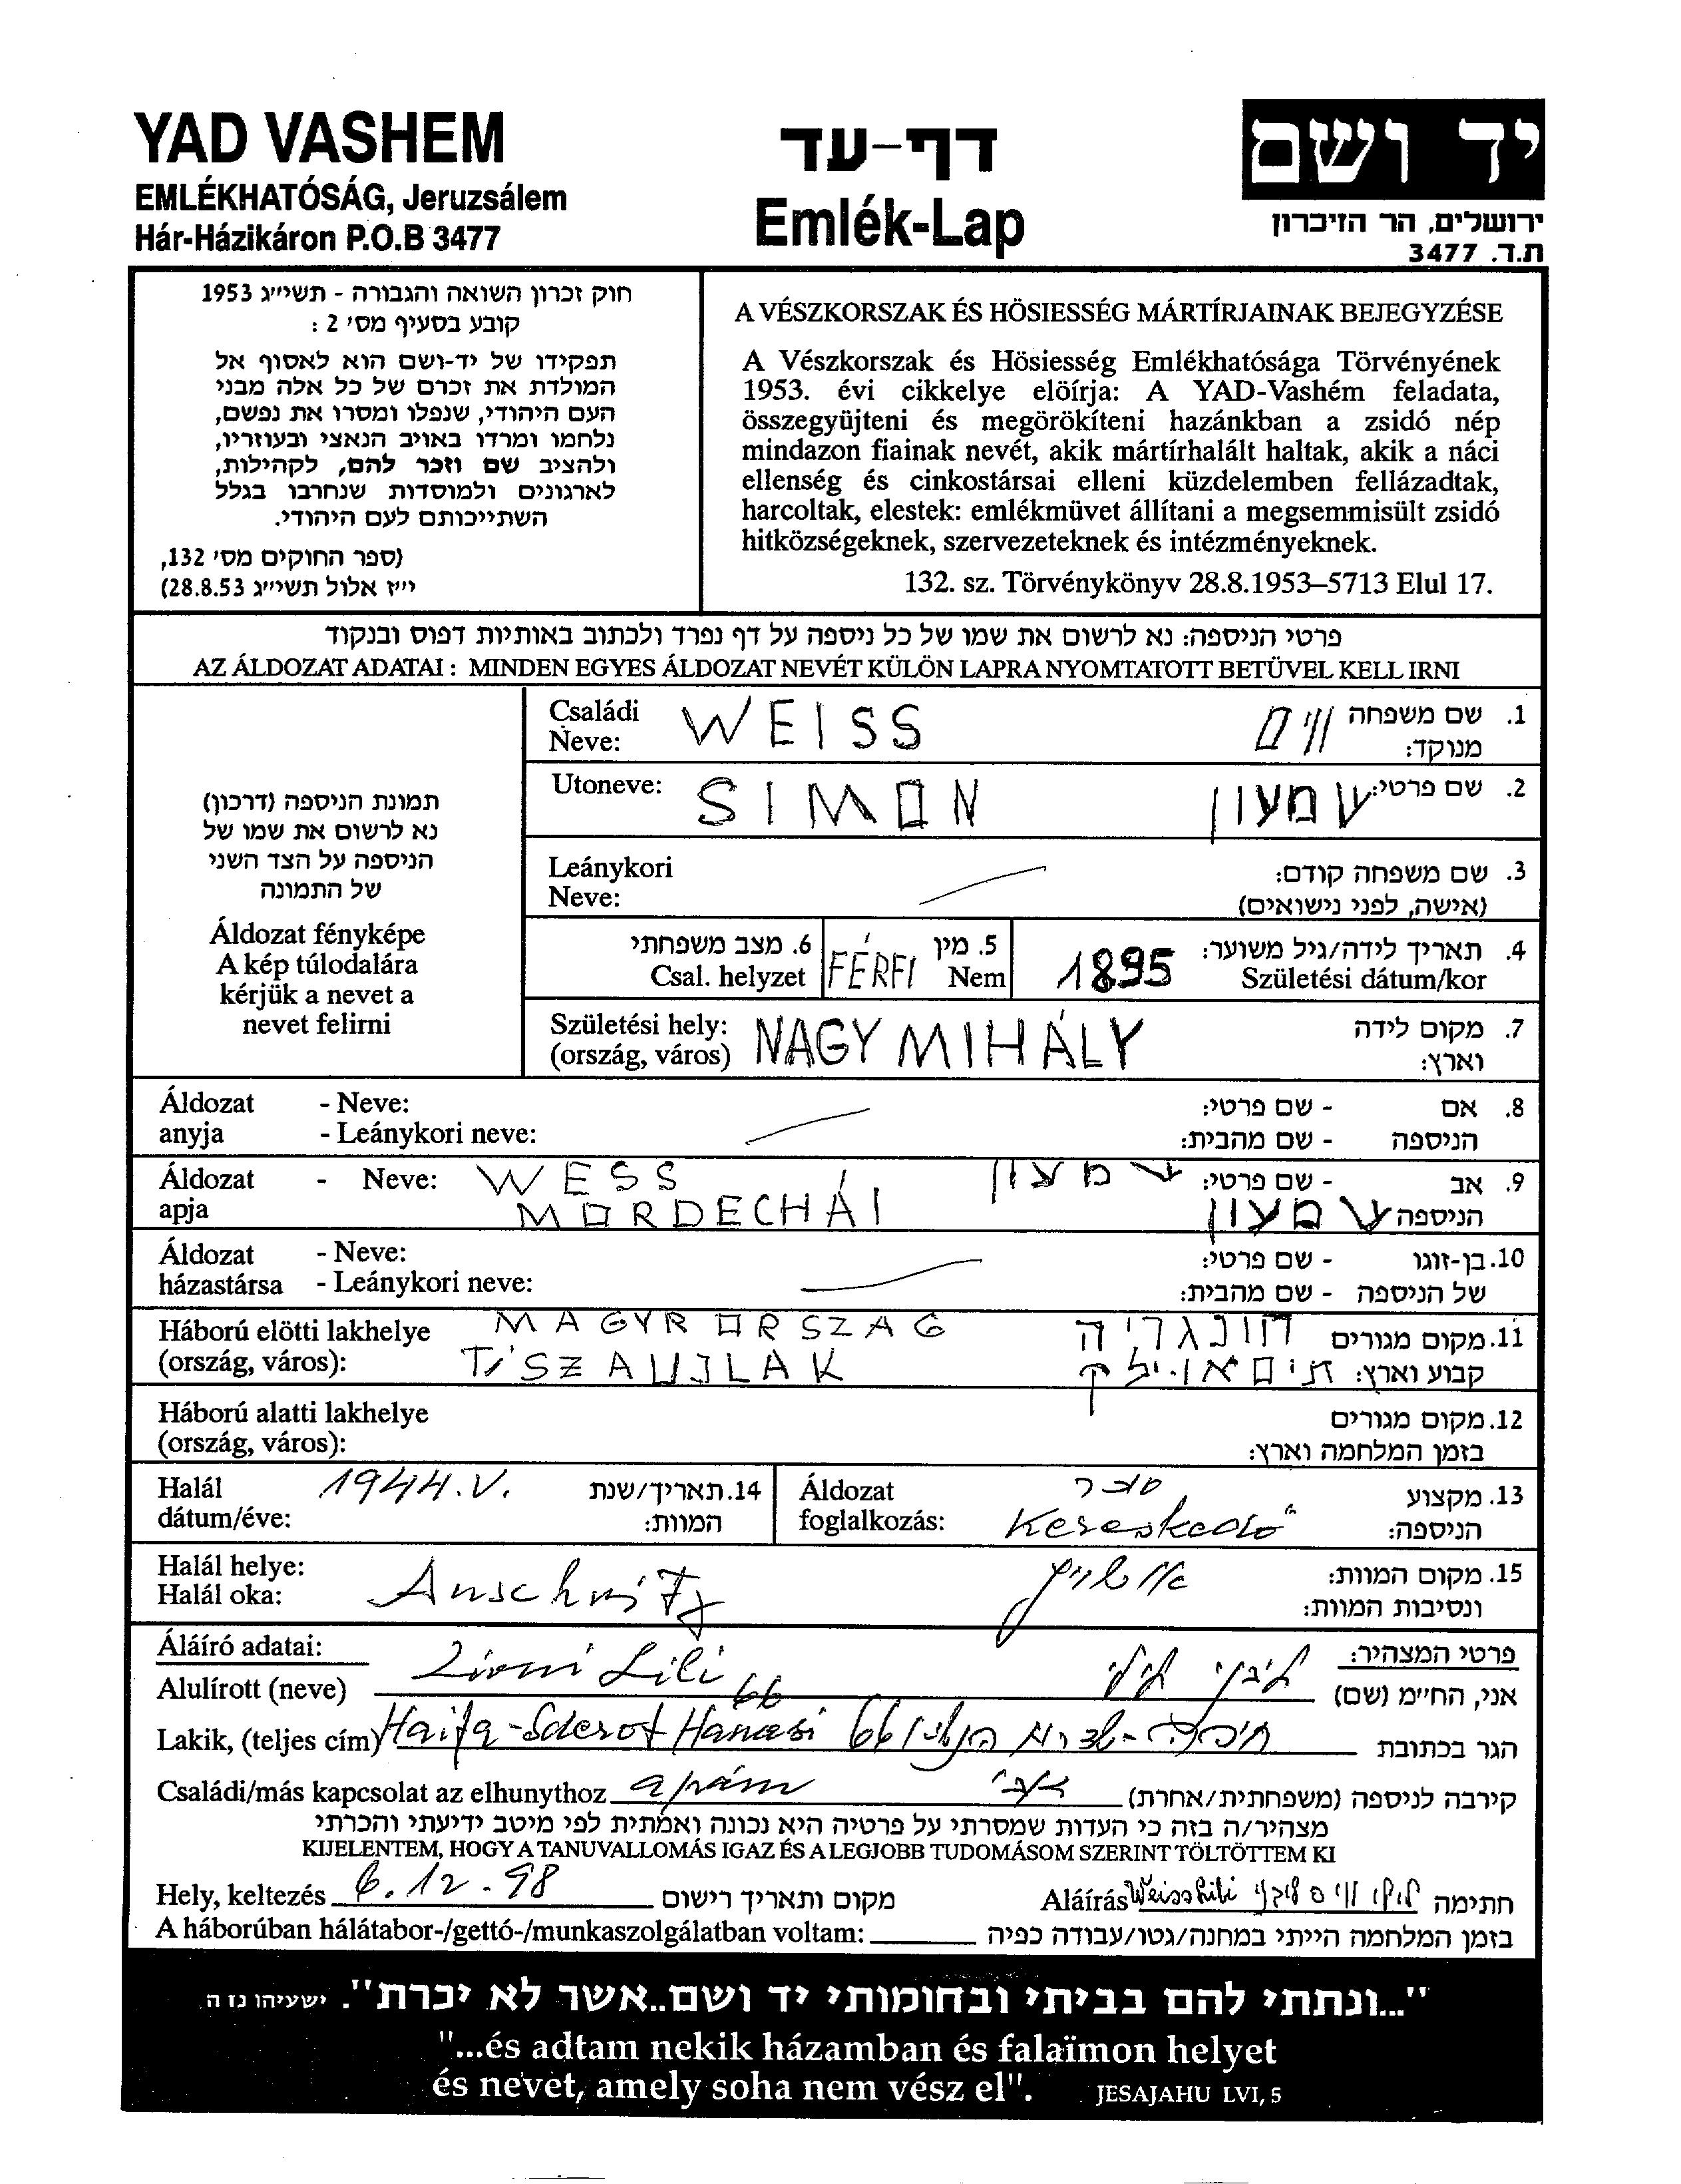 YAD VASHEM
EMLÉKHATÓSÁG, Jeruzsálem
Hár-Házikáron P.O.B 3477
דף-עד
Emlék-Lap
יד ושם
ירושלים, הר הזיכרון
ת.ד. 3477
חוק זכרון השואה והגבורה - תשי״ג 1953
קובע בסעיף מס׳ 2 :
תפקידו של יד-ושם הוא לאסוף אל
המולדת את זכרם של כל אלה מבני
העם היהודי, שנפלו ומסרו את נפשם,
נלחמו ומרדו באויב הנאצי ובעוזריו,
ולהציב שם וזכר להם, לקהילות,
לארגונים ולמוסדות שנחרבו בגלל
השתייכותם לעם היהודי.
(ספר החוקים מס׳ 132,
י״ז אלול תשי״ג 28.8.53)
A VÉSZKORSZAK ÉS HÖSIESSÉG MÁRTÍRJAINAK BEJEGYZÉSE
A Vészkorszak és Hösiesség Emlékhatósága Törvényének
1953. évi cikkelye elöírja: A YAD-Vashém feladata,
összegyüjteni és megörökíteni hazánkban a zsidó nép
mindazon fiainak nevét, akik mártírhalált haltak, akik a náci
ellenség és cinkostársai elleni küzdelemben fellázadtak,
harcoltak, elestek: emlékmüvet állítani a megsemmisült zsidó
hitközségeknek, szervezeteknek és intézményeknek.
132. sz. Törvénykönyv 28.8.1953–5713 Elul 17.
פרטי הניספה: נא לרשום את שמו של כל ניספה על דף נפרד ולכתוב באותיות דפוס ובנקוד
AZ ÁLDOZAT ADATAI : MINDEN EGYES ÁLDOZAT NEVÉT KÜLÖN LAPRA NYOMTATOTT BETÜVEL KELL IRNI
תמונת הניספה (דרכון)
נא לרשום את שמו של
הניספה על הצד השני
של התמונה
Áldozat fényképe
A kép túlodalára
kérjük a nevet a
nevet felirni
Családi Neve: WEISS וויס 1. שם משפחה מנוקד:
Utoneve: SIMON שמעון 2. שם פרטי:
Leánykori Neve: 3. שם משפחה קודם:
(אישה, לפני נישואים)
6. מצב משפחתי
Csal. helyzet
5. מין
Nem FÉRFI
4. תאריך לידה/גיל משוער:
Születési dátum/kor 1895
Születési hely:
(ország, város) NAGYMIHÁLY 7. מקום לידה
וארץ:
Áldozat - Neve: - שם פרטי: 8. אם
anyja - Leánykori neve: - שם מהבית: הניספה
Áldozat - Neve: WESS שמעון - שם פרטי: 9. אב
apja MORDECHÁI שמעון הניספה
Áldozat - Neve: - שם פרטי: 10. בן-זוגו
házastársa - Leánykori neve: - שם מהבית: של הניספה
Háború elötti lakhelye MAGYRORSZAG הונגריה 11. מקום מגורים
(ország, város): TISZAUJLAK קבוע וארץ:
Háború alatti lakhelye 12. מקום מגורים
(ország, város): בזמן המלחמה וארץ:
Halál dátum/éve: 1944.V. 14. תאריך/שנת המוות:
Áldozat foglalkozás: סוחר Kereskedő 13. מקצוע הניספה:
Halál helye: Auschwitz אושוויץ 15. מקום המוות:
Halál oka: ונסיבות המוות:
Áláíró adatai: פרטי המצהיר:
Alulírott (neve) Livni Lili ליבני לילי אני, החי״מ (שם)
Lakik, (teljes cím) Haifa-Sderot Hanasi 66 חיפה-שדרות הנשיא 66 הגר בכתובת
Családi/más kapcsolat az elhunythoz apám אבי קירבה לניספה (משפחתית/אחרת)
מצהיר/ה בזה כי העדות שמסרתי על פרטיה היא נכונה ואמתית לפי מיטב ידיעתי והכרתי
KIJELENTEM, HOGY A TANUVALLOMÁS IGAZ ÉS A LEGJOBB TUDOMÁSOM SZERINT TÖLTÖTTEM KI
Hely, keltezés 6.12.98 מקום ותאריך רישום Aláírás Weiss Lili חתימה
A háborúban hálátabor-/gettó-/munkaszolgálatban voltam: בזמן המלחמה הייתי במחנה/גטו/עבודה כפיה
"...ונתתי להם בביתי ובחומותי יד ושם..אשר לא יכרת". ישעיהו נו ה
"...és adtam nekik házamban és falaïmon helyet
és nevet, amely soha nem vész el". JESAJAHU LVI, 5